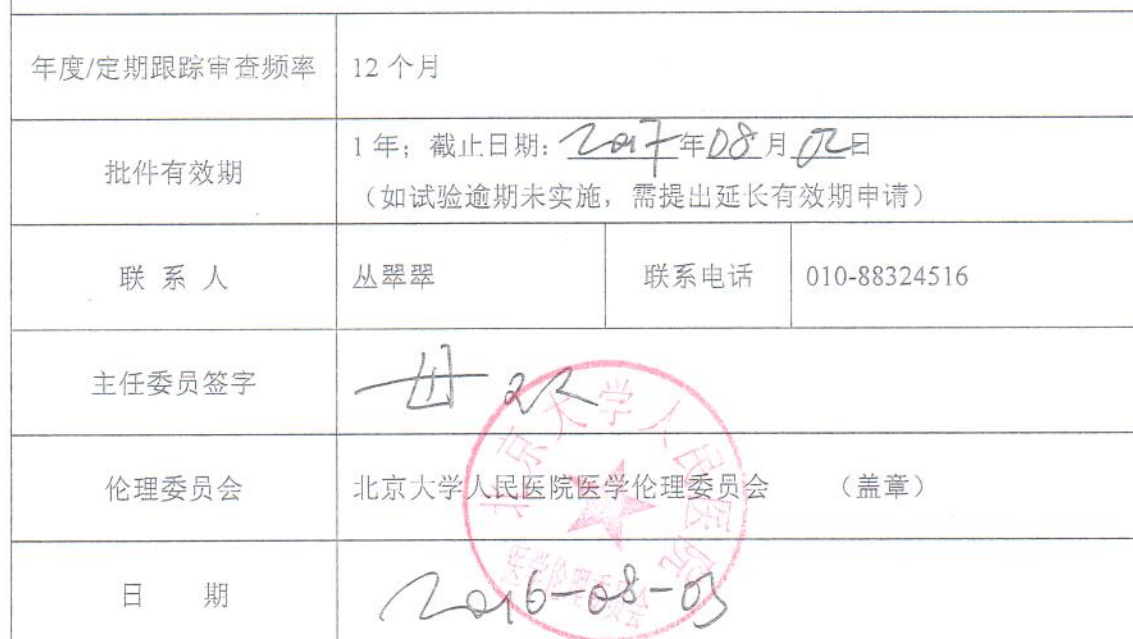 年度/定期跟踪审查频率 12 个月
批件有效期
1 年；截止日期：2017年08月02日
（如试验逾期未实施，需提出延长有效期申请）
联 系 人 丛翠翠 联系电话 010-88324516
主任委员签字
伦理委员会 北京大学人民医院医学伦理委员会 （盖章）
北京大学人民医院
医学伦理委员会
日 期 2016-08-03